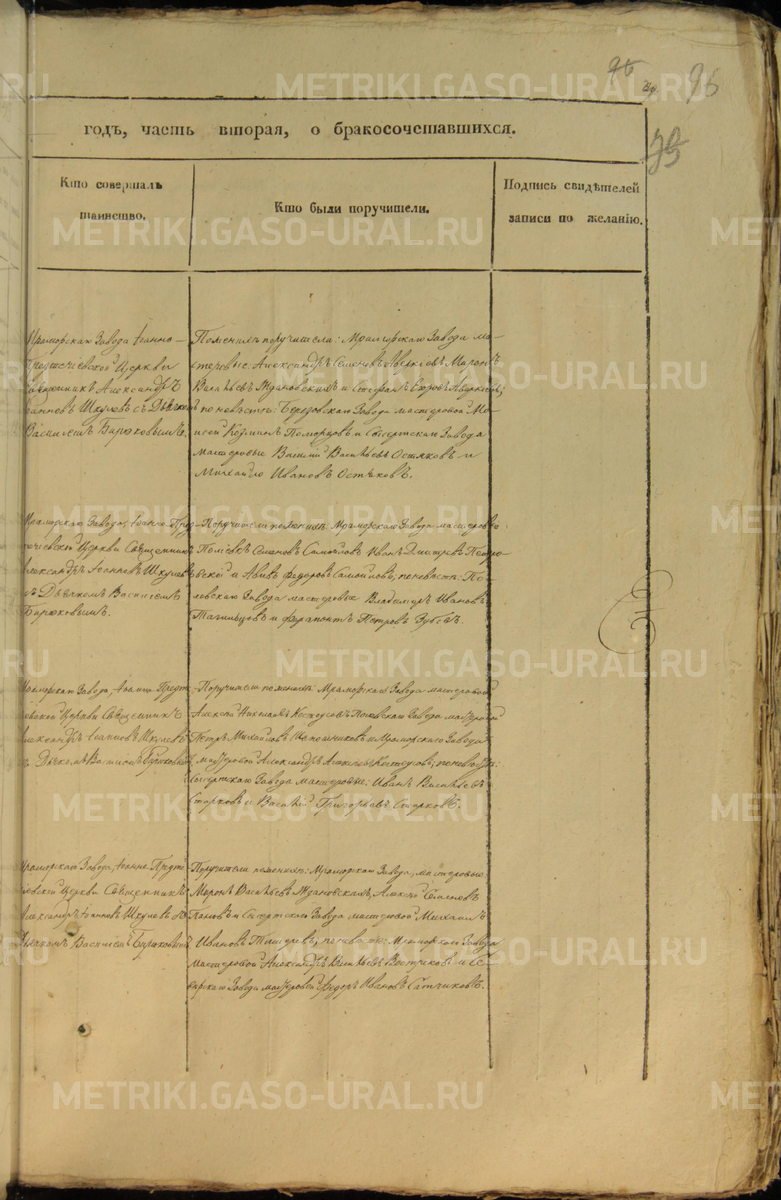 96
95
годъ, часть вторая, о бракосочетавшихся.
Кто совершалъ
таинство.
Кто были поручители.
Подпись свидѣтелей
записи по желанію.
Мраморскаго Завода Іоанно-
Предтечевской Церкви
Священникъ Александръ
Іоанновъ Шкулевъ съ Дьячкомъ
Василіемъ Бирюковымъ.
По женихѣ поручители: Мраморскаго Завода ма-
стеровые Александръ Семеновъ Миронъ
Васильевъ Ждановскихъ и Стефанъ
по невѣстѣ: Березовскаго Завода мастеровой Мо-
исей Козминъ и Сысертскаго Завода
мастеровые Василий Васильевъ и
Михайло Ивановъ
Мраморскаго Завода, Іоанно-Пред-
течевской Церкви Священникъ
Александръ Іоанновъ Шкулевъ
съ Дьячкомъ Василіемъ
Бирюковымъ.
Поручители по женихѣ: Мраморскаго Завода мастеровые
Семеновъ Самойловъ Иванъ Дмитревъ Петро-
вской и Авивъ Федоровъ Самойловъ, по невѣстѣ: По-
левскаго Завода мастеровые Владимиръ Ивановъ
и Ферапонтъ Петровъ Зуевъ.
Мраморскаго Завода, Іоанно-Предте-
чевской Церкви Священникъ
Александръ Іоанновъ Шкулевъ
съ Дьячкомъ Василіемъ Бирюковымъ
Поручители по женихѣ: Мраморскаго Завода мастеровой
Алексей Костоусовъ, Полевскаго Завода мастеровой
Петръ Михайловъ и Мраморскаго Завода
мастеровой Александръ Алексеевъ Костоусовъ; по невѣстѣ:
Сысертскаго Завода мастеровые: Иванъ Васильевъ
Старковъ и Василій Григорьевъ Старковъ.
Мраморскаго Завода, Іоанно-Предте-
чевской Церкви Священникъ
Александръ Іоанновъ Шкулевъ съ
Дьячкомъ Василіемъ Бирюковымъ
Поручители по женихѣ: Мраморскаго Завода, мастеровые
Миронъ Васильевъ Ждановскихъ, Алексей Семеновъ
и Сысертскаго Завода мастеровой Михаилъ
Ивановъ по невѣстѣ: Мраморскаго Завода
мастеровой Александръ Васильевъ Вотряковъ и Се-
верскаго Завода мастеровой Федоръ Ивановъ
METRIKI.GASO-URAL.RU